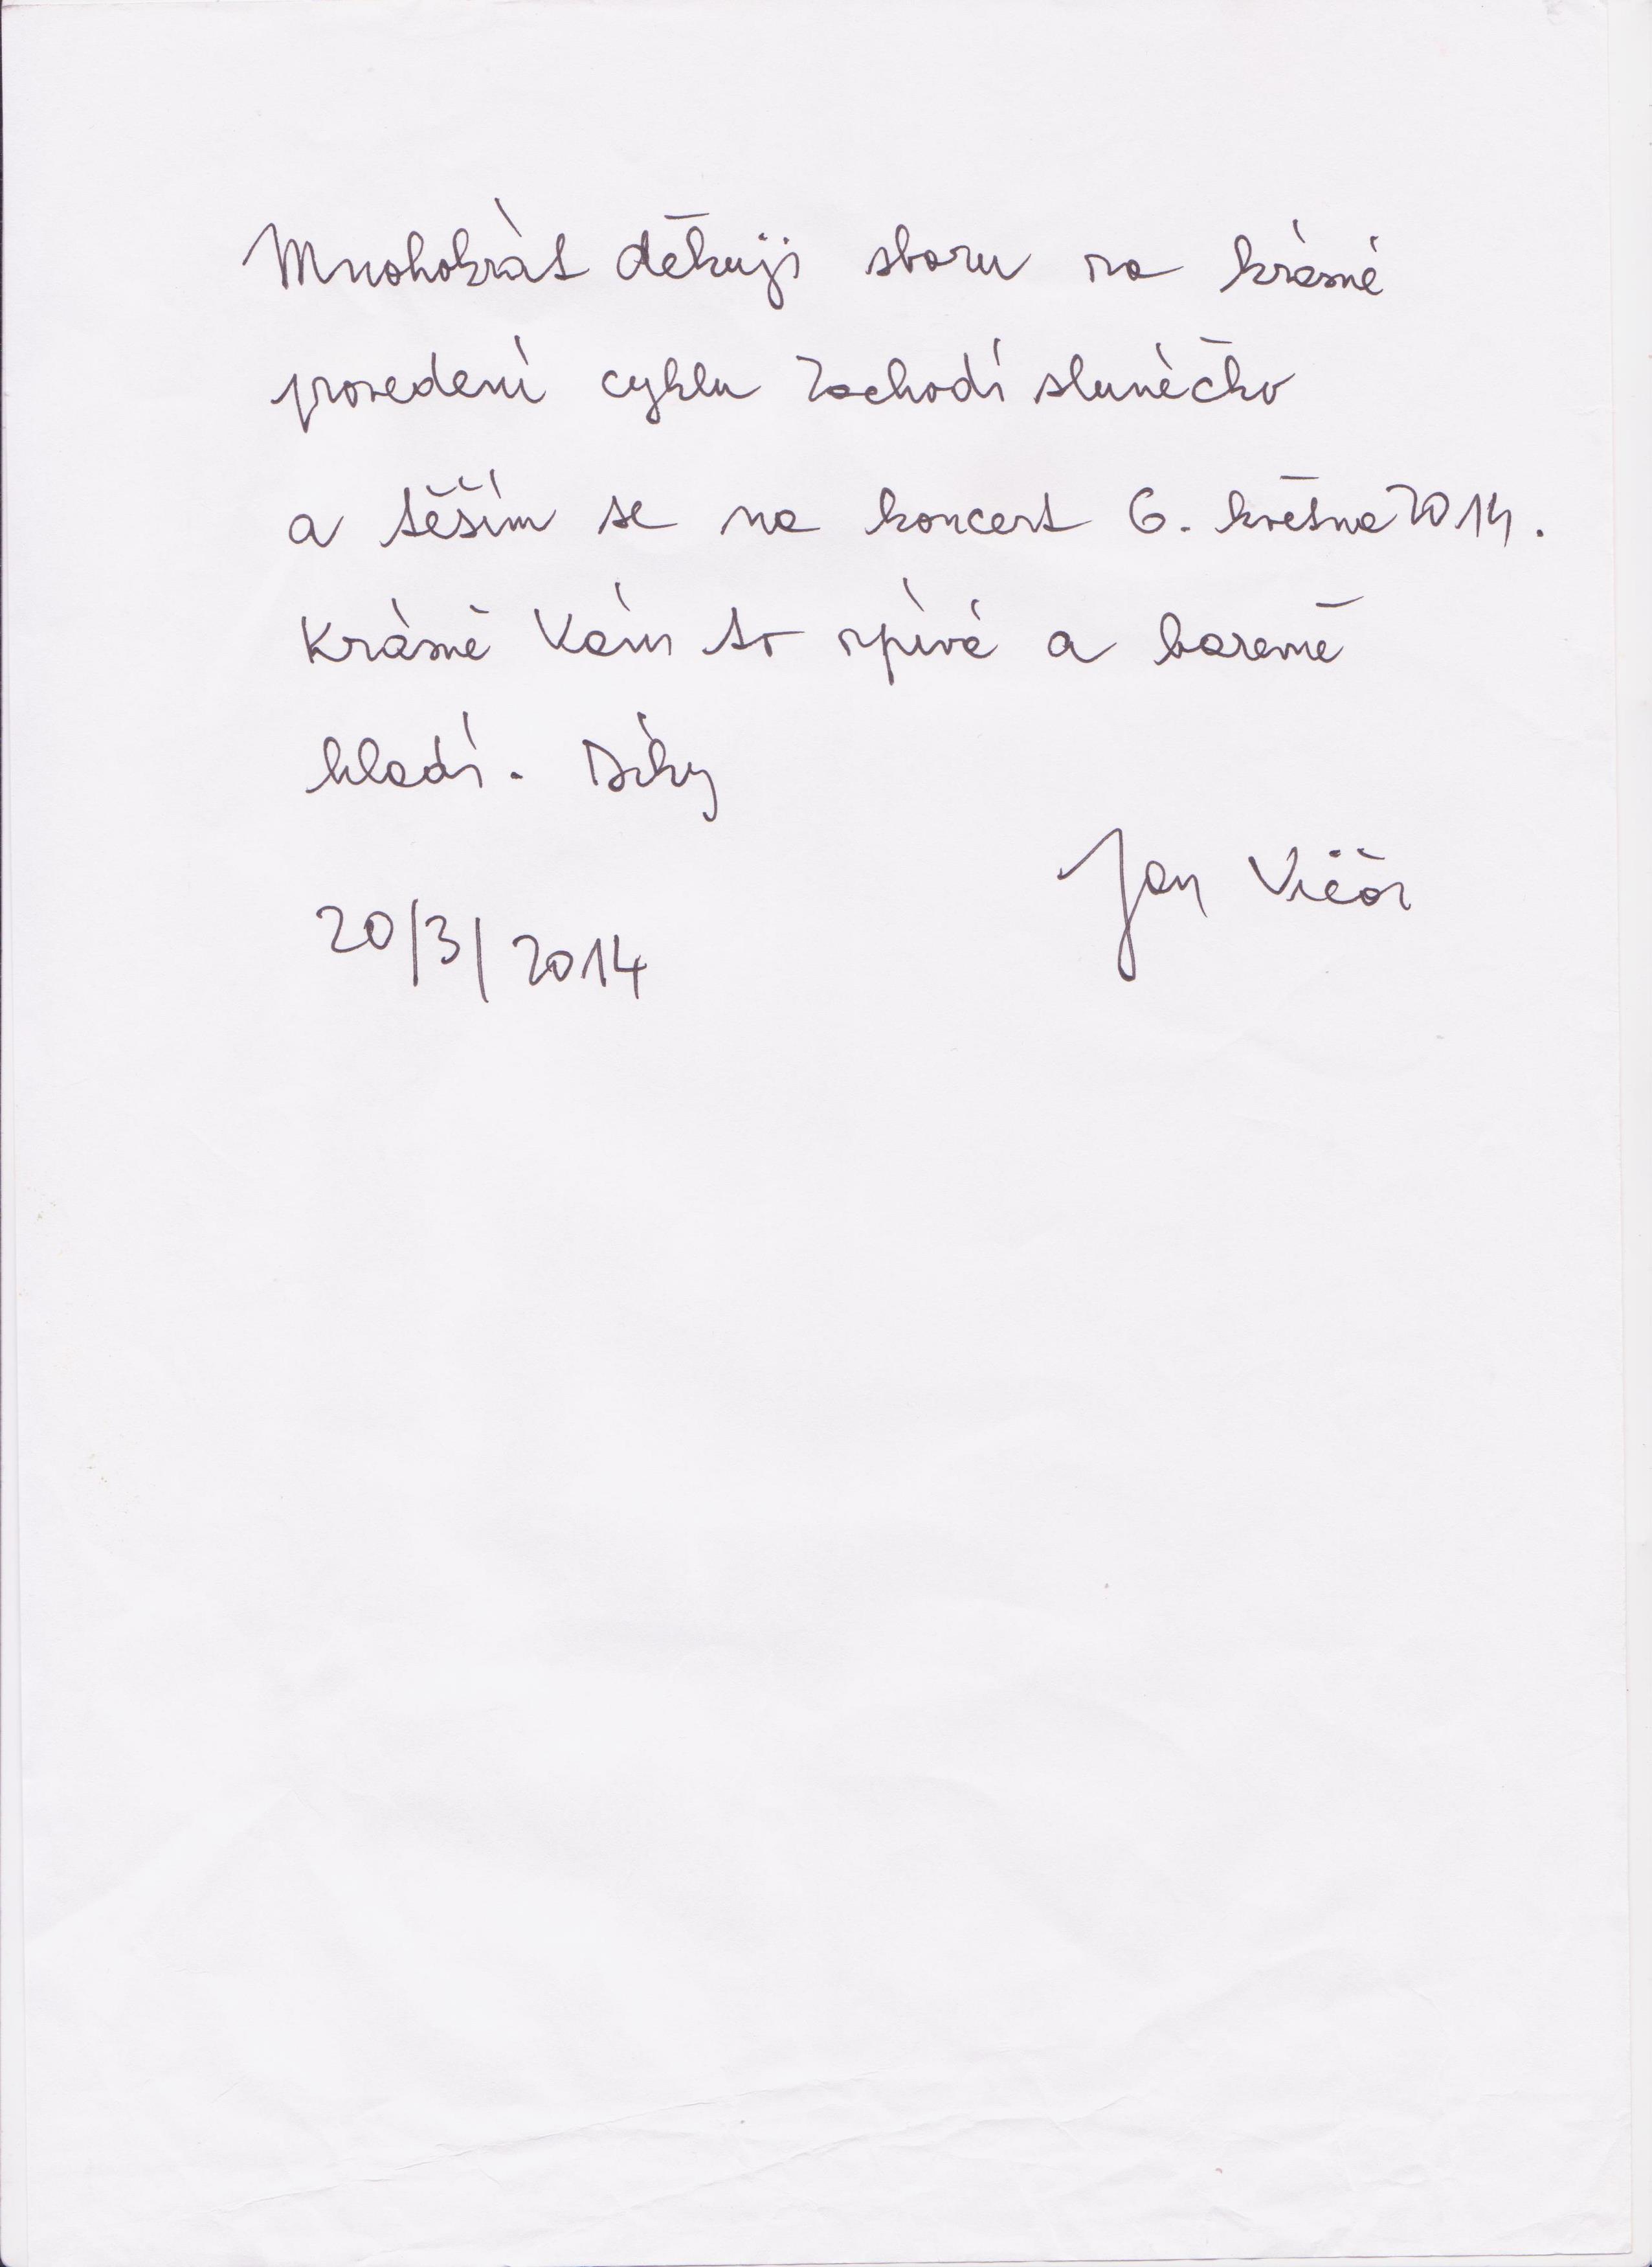 Mnohokrát děkuji sboru za krásné
provedení cyklu Zachodí slunéčko
a těším se na koncert 6. května 2014.
Krásně Vám to zpívá a barevně
hladí. Díky
Jan Vičar
20/3/2014